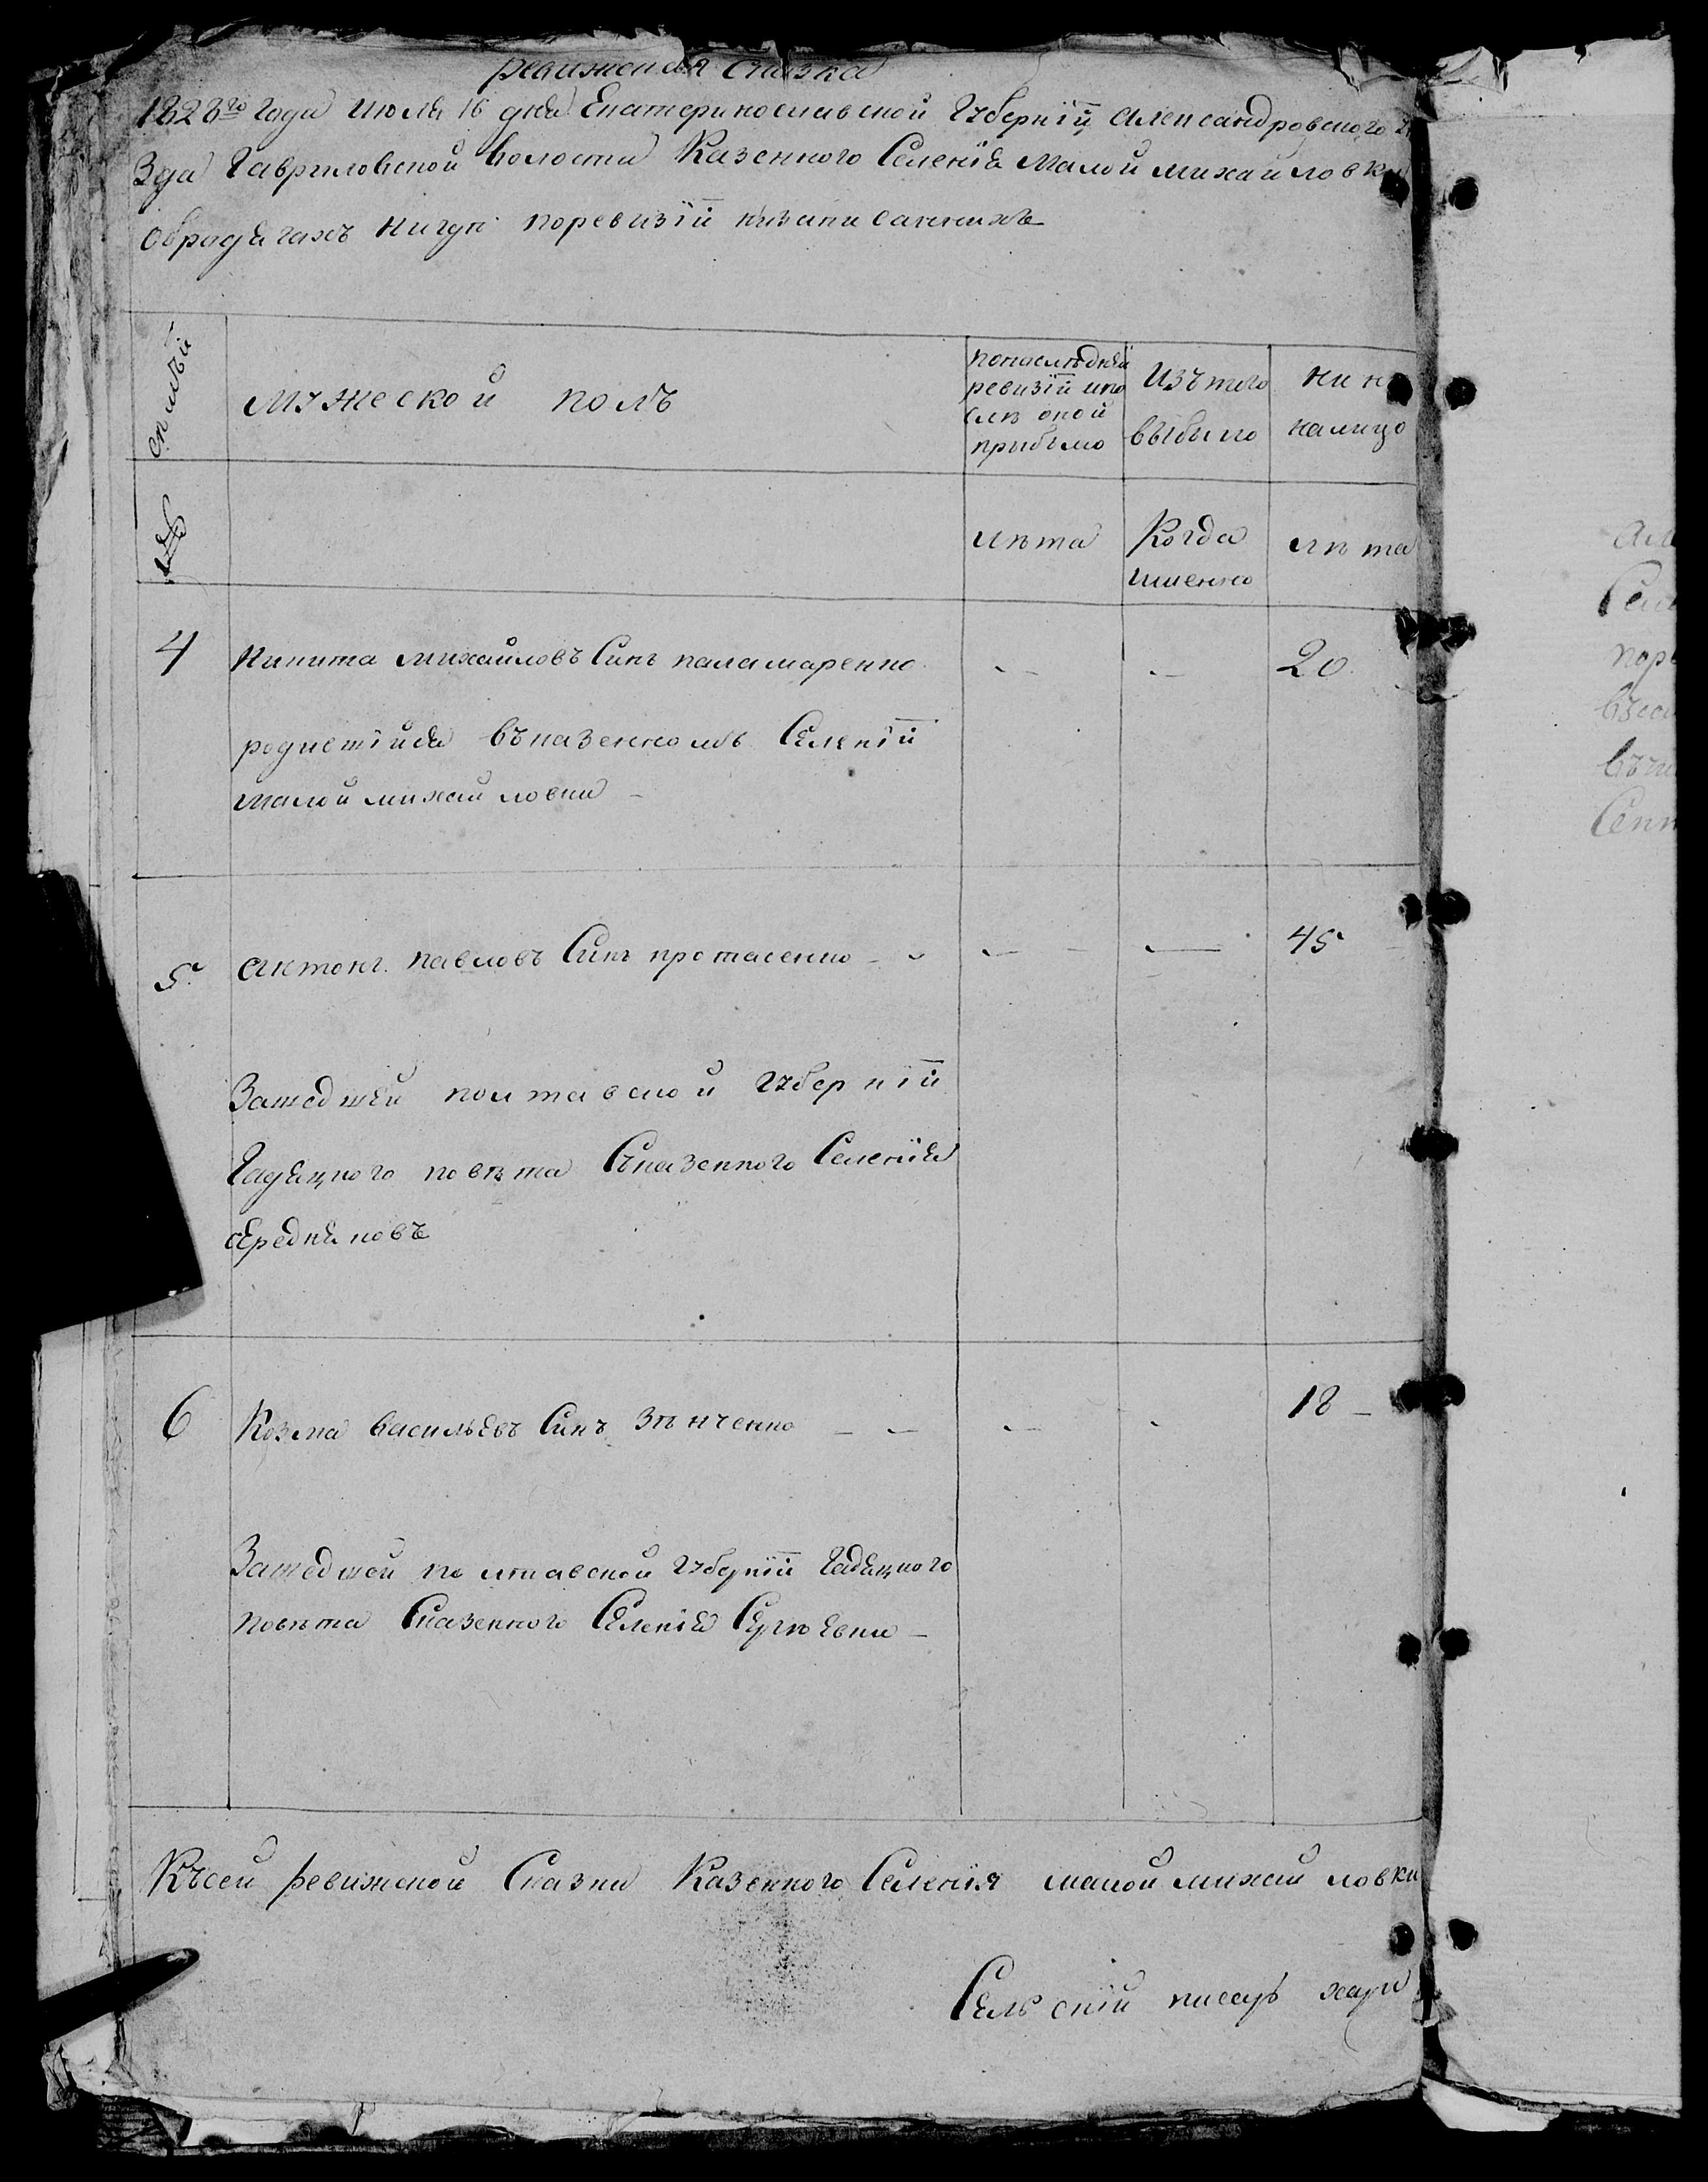 ревижская сказка
1828го года июля 16 дня Екатеринославской Губерніи Александровского У
Зда Гавриловской Волости Казенного Селенія Малой михайловки
Обродягахъ нигде поревизіи низаписаннихъ
семъи
мужеской полъ
попоследней
ревизіи ипо
сле оной
прибыло
Изътого
выбыло
нине
налицо
лета
Когда
имянно
лета
4 Никита михаиловъ Синъ паламаренко - - 20
родистійся въказенномъ Селеніи
малой михайловки -
5 антонъ павловъ Синъ протасенко - - - 45
Зашедшей полтавской Губерніи
Гадяцкого повета Сказенного Селенія
середняковъ
6 Козма васильевъ Синъ зенченко - - - - 18 -
Зашедшей полтавской Губерніи Гадяцкого
повета Сказенного Селенія Сергеевки -
Късей ревижской Сказки Казенного Селенія малой михайловки
Селъскій писаръ хари